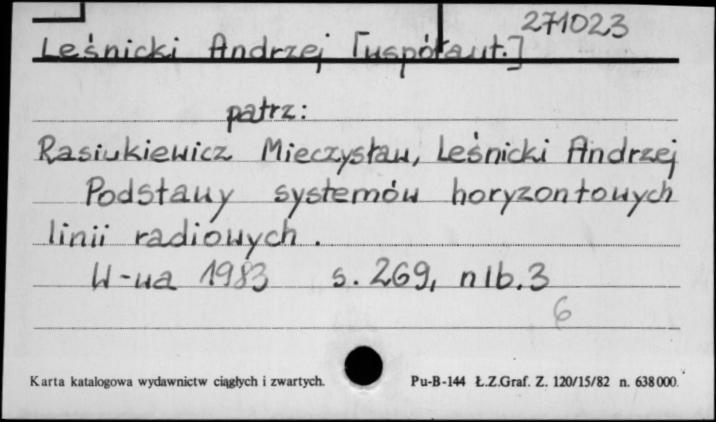 271023
Leśnicki Andrzej [współaut.]
patrz:
Rasiukiewicz Mieczysław, Leśnicki Andrzej
Podstawy systemów horyzontowych
linii radiowych.
W-wa 1983 s. 269, nlb. 3
6
Karta katalogowa wydawnictw ciągłych i zwartych. Pu-B-144 Ł.Z.Graf. Z. 120/15/82 n. 638000.